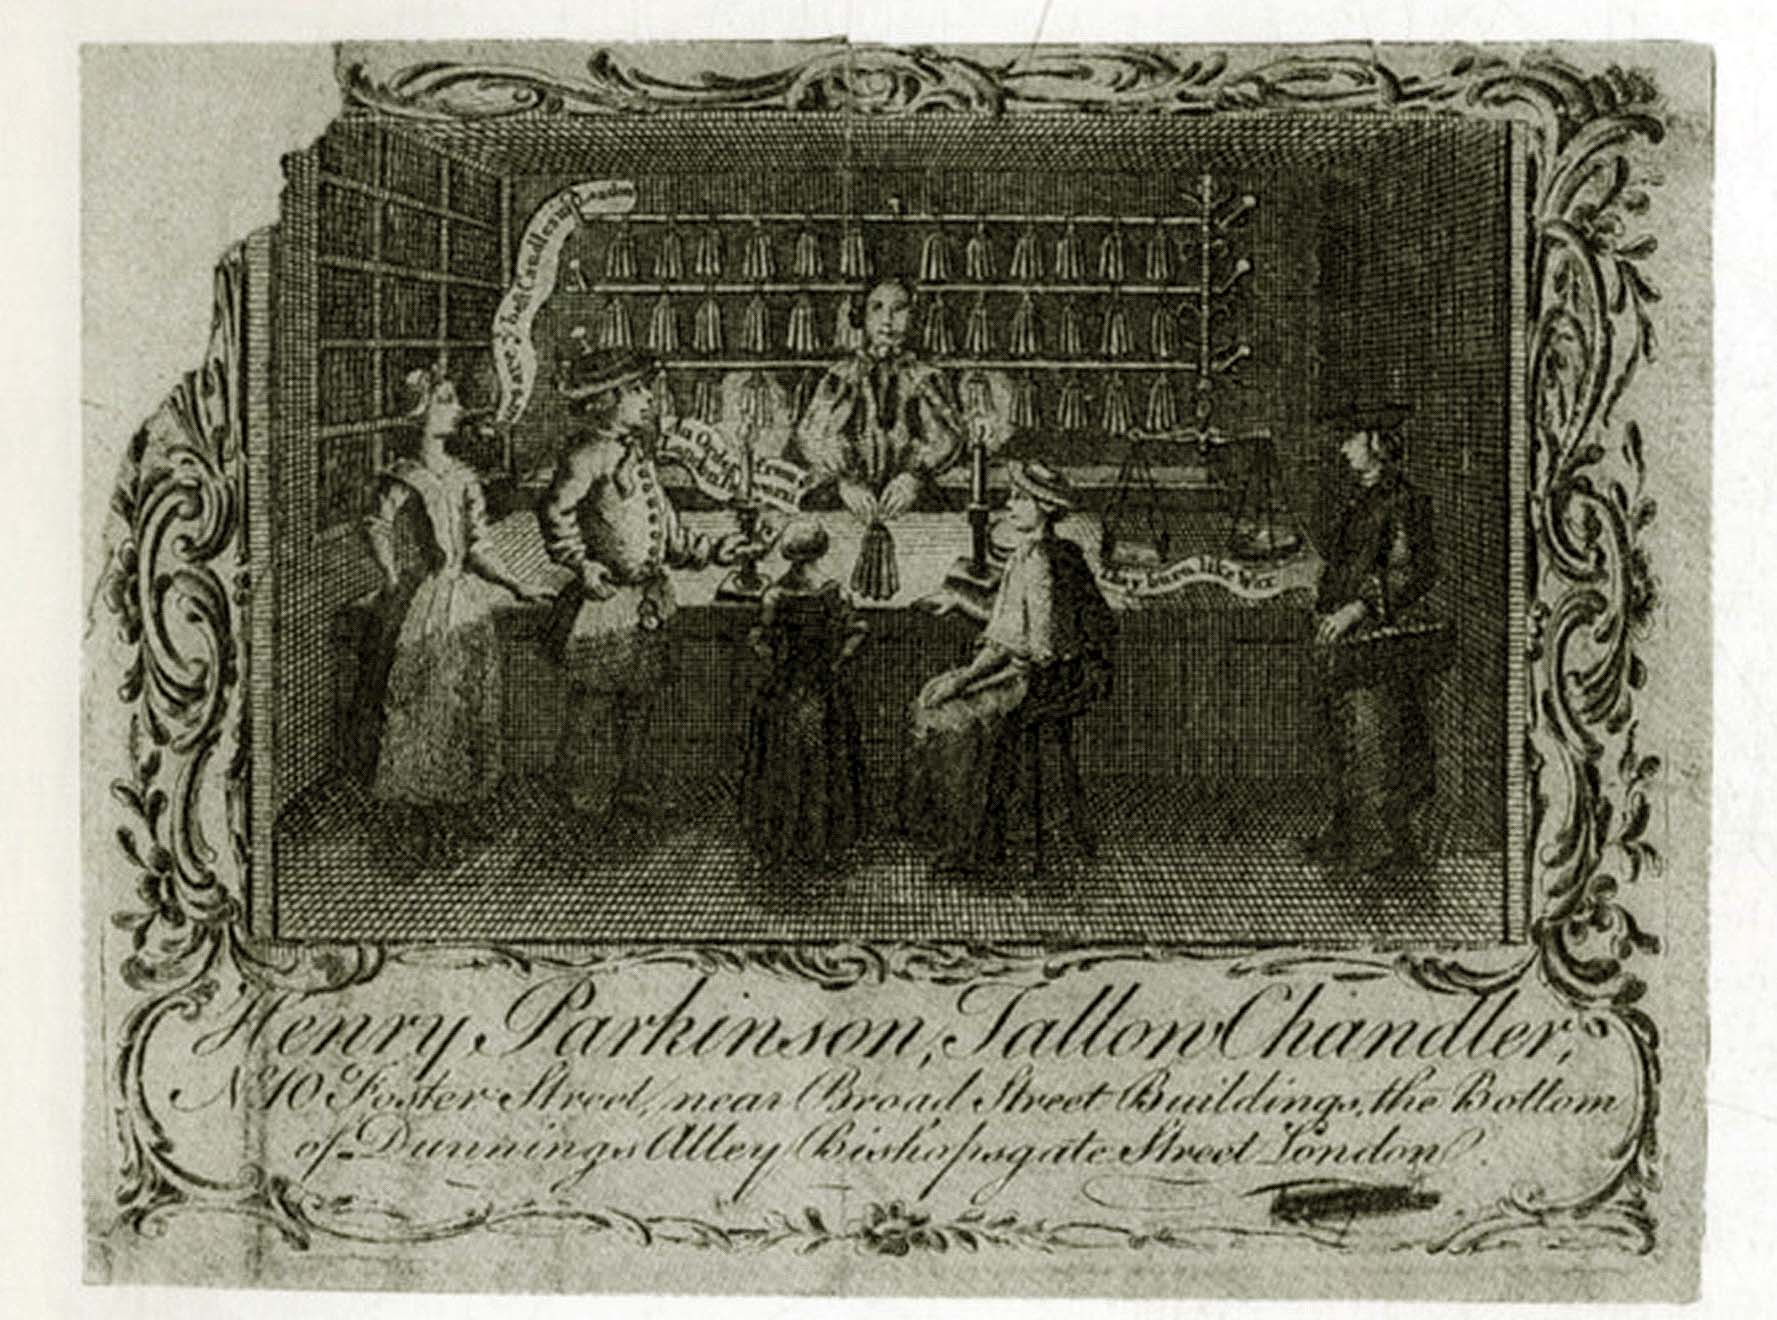 best Candles in London
they burn like Wax
Henry Parkinson, Tallow Chandler,
No. 10 Foster Street, near Broad Street Buildings, the Bottom
of Dunnings Alley Bishopsgate Street London.